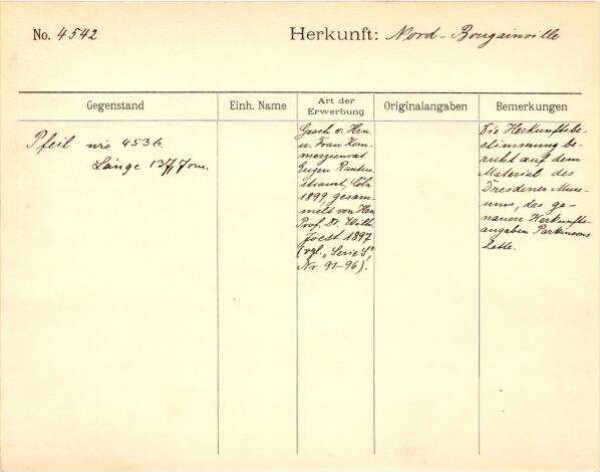 No. 4542
Herkunft: Nord-Bougainville
Gegenstand
Einh. Name
Art der Erwerbung
Originalangaben
Bemerkungen
Pfeil wie 4536.
Länge 137,7 cm.
Gesch. v. Hrn.
u. Frau Kom-
merzienrat
Eugen Rauten-
strauch, Cöln
1899, gesam-
melt von Hrn.
Prof. Dr. Wilh.
Joest 1897
(vgl. „Serie S",
Nr. 91-96).
Die Herkunftsbe-
stimmung be-
ruht auf dem
Material des
Dresdener Muse-
ums, das ge-
nauere Herkunfts-
angaben Parkinsons
hatte.